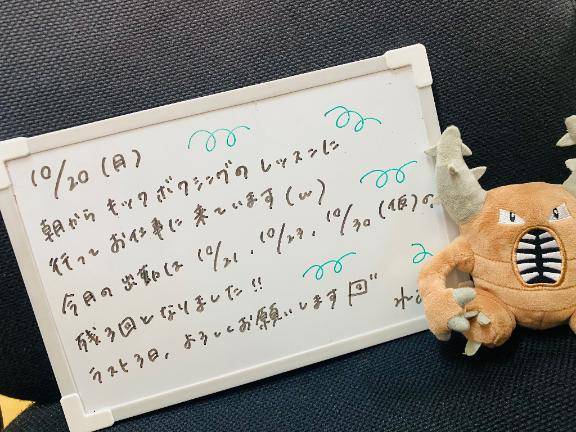 10/20（月）
朝から キックボクシングの レッスンに
行って お仕事に 来ています（w）
今月の 出勤は 10/21、10/23、10/30（仮）の
残3回と なりました!!
ラスト3日、よろしくお願いします